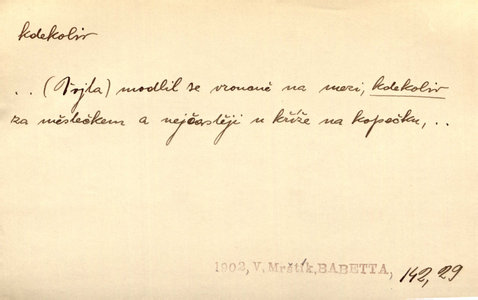 kdekoliv
.. (Vojta) modlil se vroucně na mezi, kdekoliv
za městečkem a nejčastěji u kříže na kopečku, ..
1902, V. Mrštík, BABETTA, 142, 29